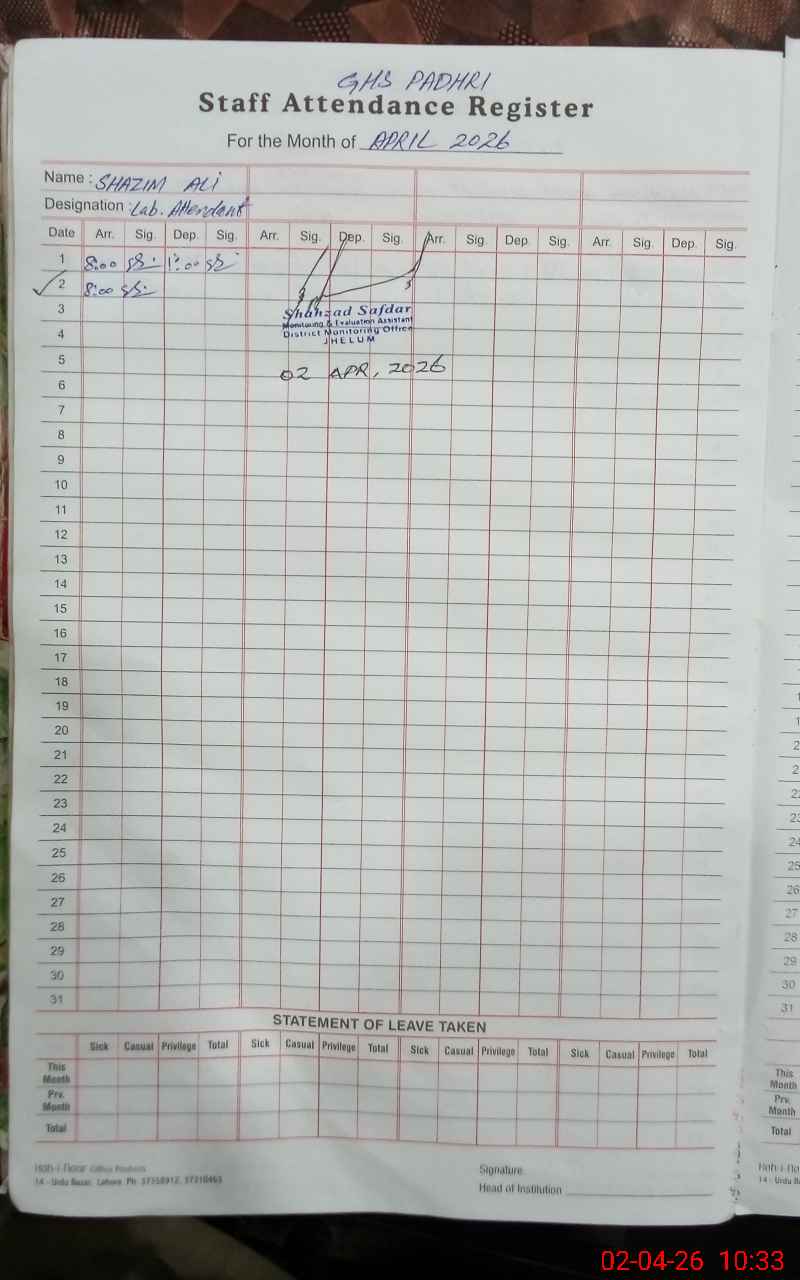 GHS PADHRI
Staff Attendance Register
For the Month of APRIL 2026
Name : SHAZIM ALI
Designation : Lab. Attendant
Date Arr. Sig. Dep. Sig. Arr. Sig. Dep. Sig. Arr. Sig. Dep. Sig. Arr. Sig. Dep. Sig.
1 8:00 1:00
2 8:00
3
Shahzad Safdar
Monitoring & Evaluation Assistant
4
District Monitoring Office
JHELUM
5
02 APR, 2026
6
7
8
9
10
11
12
13
14
15
16
17
18
19
20
21
22
23
24
25
26
27
28
29
30
31
STATEMENT OF LEAVE TAKEN
Sick Casual Privilege Total Sick Casual Privilege Total Sick Casual Privilege Total Sick Casual Privilege Total
This Month
Prv. Month
Total
Koh-i-Noor
14 - Urdu Bazar, Lahore. Ph: 37358912, 37310463
Signature
Head of Institution
25
26
27
28
29
30
31
This Month
Prv. Month
Total
14 - Urdu
02-04-26 10:33